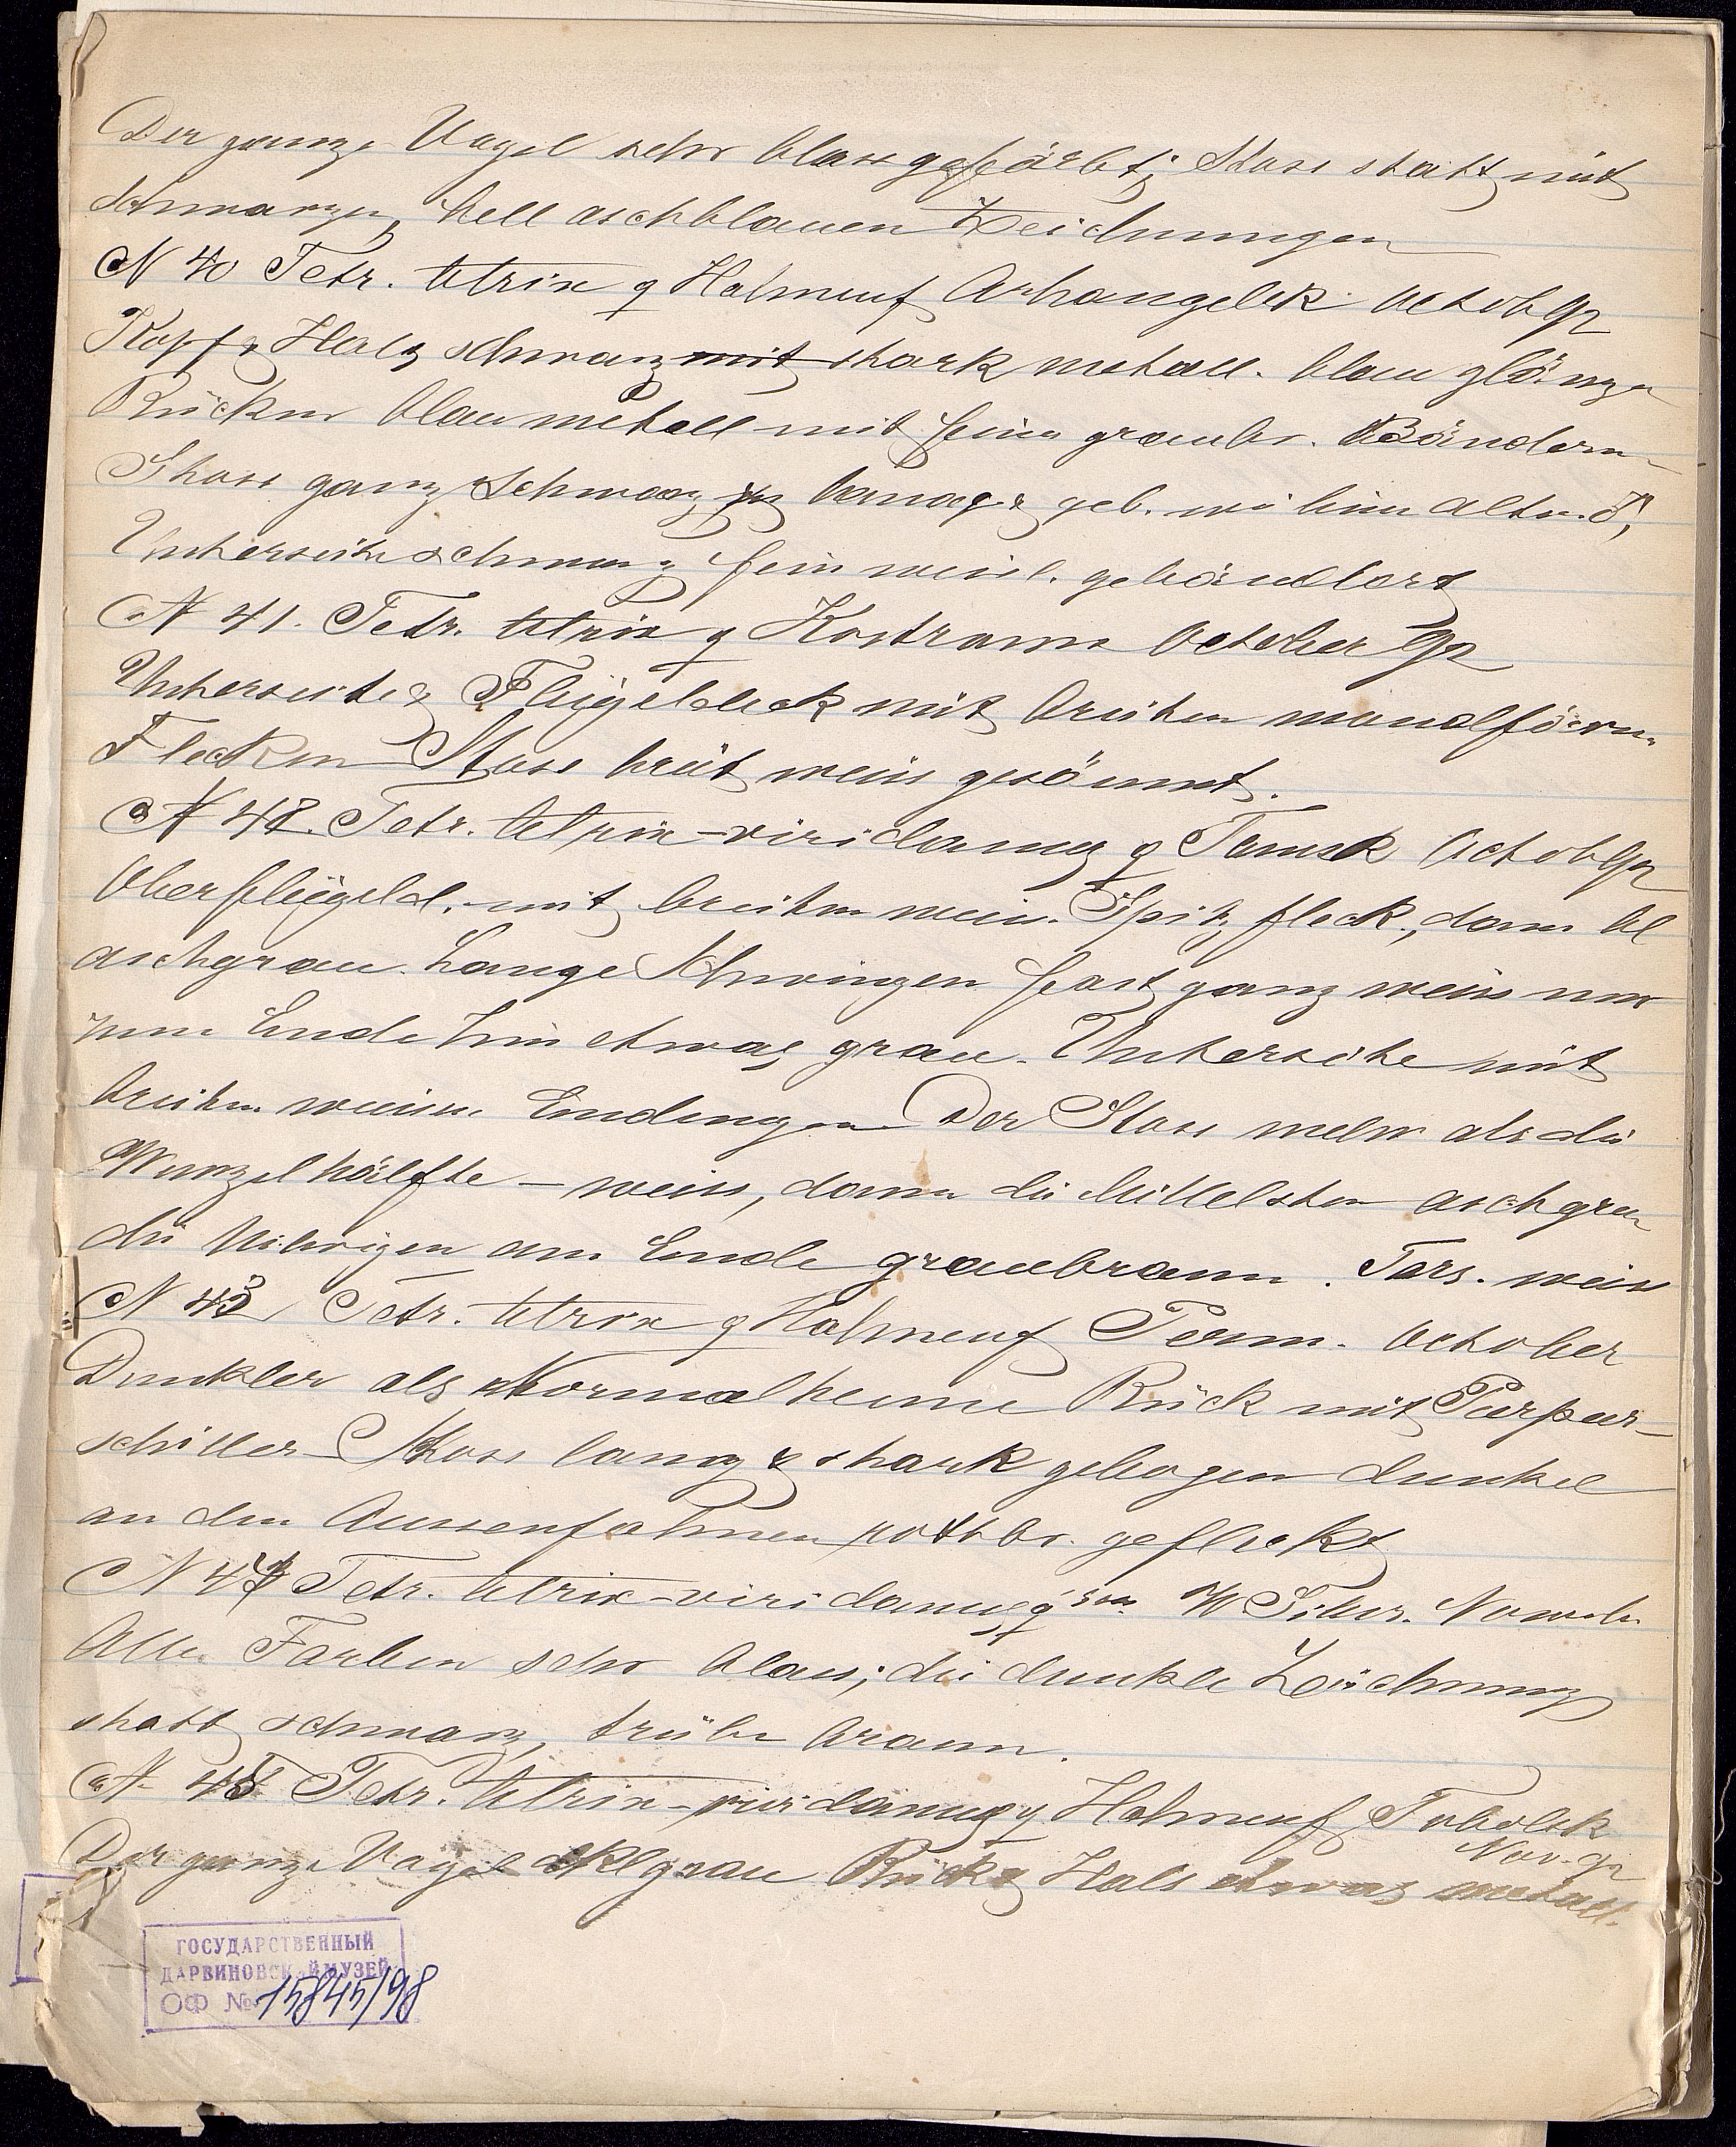 Der ganze Vogel sehr blass gefärbt; Stoss statt mit
schwarzen, hell aschblauen Zeichnungen
N 40 Tetr. tetrix ♀ Hahnenf. Arhangelsk. Octob 92
Kopf & Hals schwarz mit stark metall. blau glänzen
Rücken blau metall mit feinen graubr. Bändern
Stoss ganz Schwarz geb. wie beim alten ♂,
Unterseite schwarz fein weissl. gebändert
N 41. Tetr. tetrix ♀ Kostroma October 92
Unterseite & Flügeldeck mit breiten mondförm.
Flecken Stoss breit weiss gesäumt.
N 42. Tetr. tetrix-viridanus ♀ Tomsk Octob 92
Oberflügeld. mit breiten weiss. Spitz fleck., dann bl
aschgrau. Lange Schwingen fast ganz weiss nur
zum Ende hin etwas grau. Unterseite mit
breiten weissen Endungen Der Stoss mehr als die
Wurzelhälfte – weiss, dann die Mittelsten aschgrau
die Uebrigen am Ende graubraun. Tars. weiss
N 43 Tetr. tetrix ♀ Hahnenf Perm. October
Dunkler als Normalhenne Rück mit Purpur-
schiller Stoss lang & stark gebogen dunkel
an den Aussenfahnen rothbr. gefleckt
N 44 Tetr. tetrix-viridanus ♀ W Sibir. Novemb.
Alle Farben sehr blass; die dunkle Zeichnung
statt schwarz, trübe braun.
N 45 Tetr. tetrix-viridanus ♀ Hahnenf Tobolsk
Nov. 92
Der ganze Vogel dklgrau Rück & Hals etwas metall.
ГОСУДАРСТВЕННЫЙ
ДАРВИНОВСКИЙ МУЗЕЙ
ОФ № 15845/98